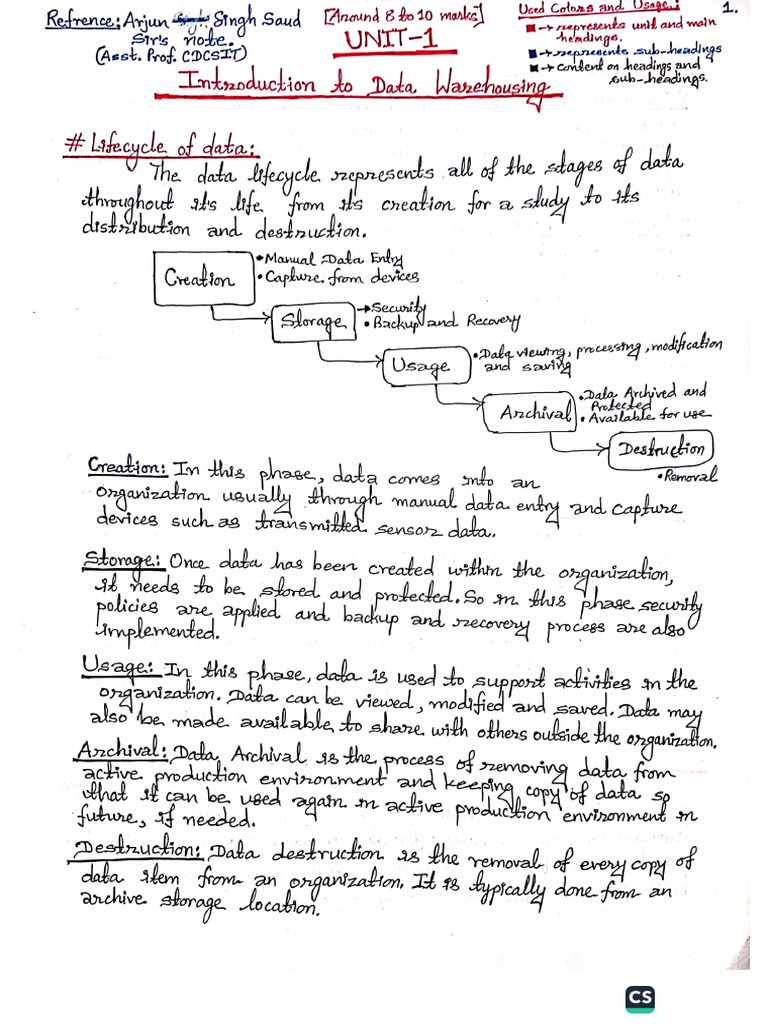 Refrence: Arjun Singh Saud
Sir's note.
(Asst. Prof. CDCSIT)
[Around 8 to 10 marks]
UNIT-1
Introduction to Data Warehousing
Used Colors and Usage:
→ represents unit and main
headings.
→ represents sub-headings
→ content on headings and
sub-headings.
1.
# Lifecycle of data:
The data lifecycle represents all of the stages of data
throughout it's life from its creation for a study to its
distribution and destruction.
Creation
• Manual Data Entry
• Capture from devices
Storage
→ Security
• Backup and Recovery
Usage
• Data viewing, processing, modification
and saving
Archival
• Data Archived and
Protected
• Available for use
Destruction
• Removal
Creation: In this phase, data comes into an
organization usually through manual data entry and capture
devices such as transmitted sensor data.
Storage: Once data has been created within the organization,
it needs to be stored and protected. So in this phase security
policies are applied and backup and recovery process are also
implemented.
Usage: In this phase, data is used to support activities in the
organization. Data can be viewed, modified and saved. Data may
also be made available to share with others outside the organization.
Archival: Data Archival is the process of removing data from
active production environment and keeping copy of data so
that it can be used again in active production environment in
future, if needed.
Destruction: Data destruction is the removal of every copy of
data item from an organization. It is typically done from an
archive storage location.
CS